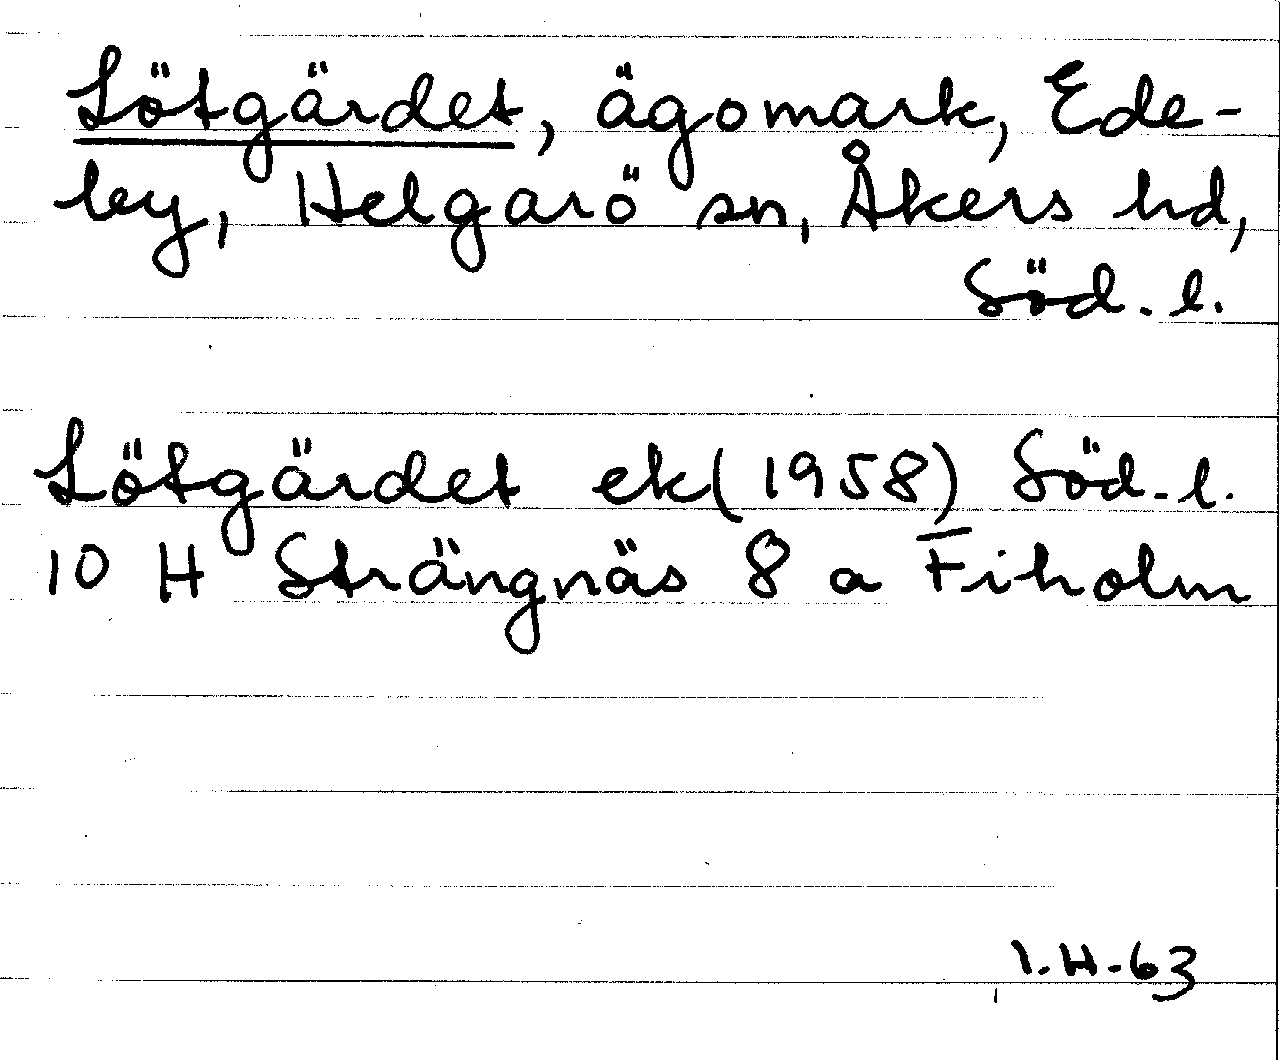 Lötgärdet, ägomark, Ede-
by, Helgarö sn, Åkers hd,
Söd. l.
Lötgärdet ek (1958) Söd. l.
10 H Strängnäs 8 a Fiholm
I.H-63